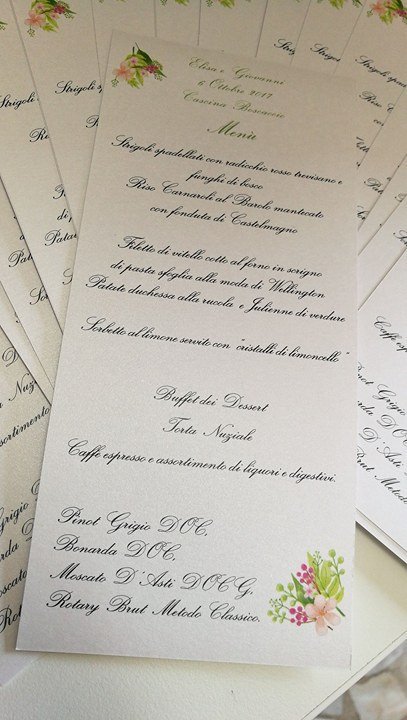 Elisa e Giovanni
6 Ottobre 2017
Cascina Boscaccio
Menù
Strigoli spadellati con radicchio rosso trevisano e
funghi di bosco
Riso Carnaroli al Barolo mantecato
con fonduta di Castelmagno
Filetto di vitello cotto al forno in scrigno
di pasta sfoglia alla moda di Wellington
Patate duchessa alla rucola e Julienne di verdure
Sorbetto al limone servito con "cristalli di limoncello"
Buffet dei Dessert
Torta Nuziale
Caffè espresso e assortimento di liquori e digestivi.
Pinot Grigio DOC,
Bonarda DOC,
Moscato D'Asti DOCG,
Rotary Brut Metodo Classico.